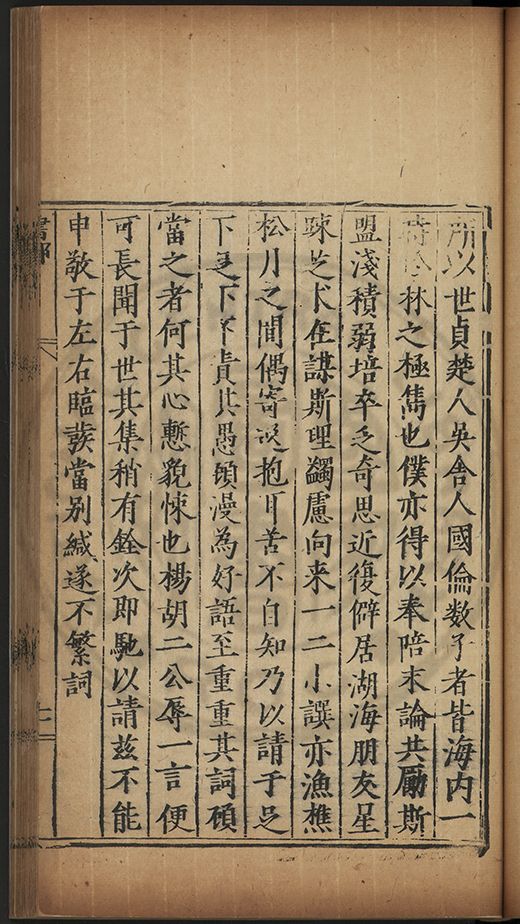 所以世貞楚人吳舍人國倫数子者皆海内一
林之極雋也僕亦得以奉陪末論共勵斯
盟淺積弱培卒乏奇思近復僻居湖海朋友星
踈芝朮在謀斯理蠲慮向来一二小譔亦漁樵
松月之間偶寄抱耳苦不自知乃以請于足
下足下不責其愚頋漫為好語至重重其詞碩
當之者何其心慙貌悚也楊胡二公辱一言便
可長聞于世其集稍有銓次即馳以請茲不能
申敬于左右臨發當别緘遂不繁詞